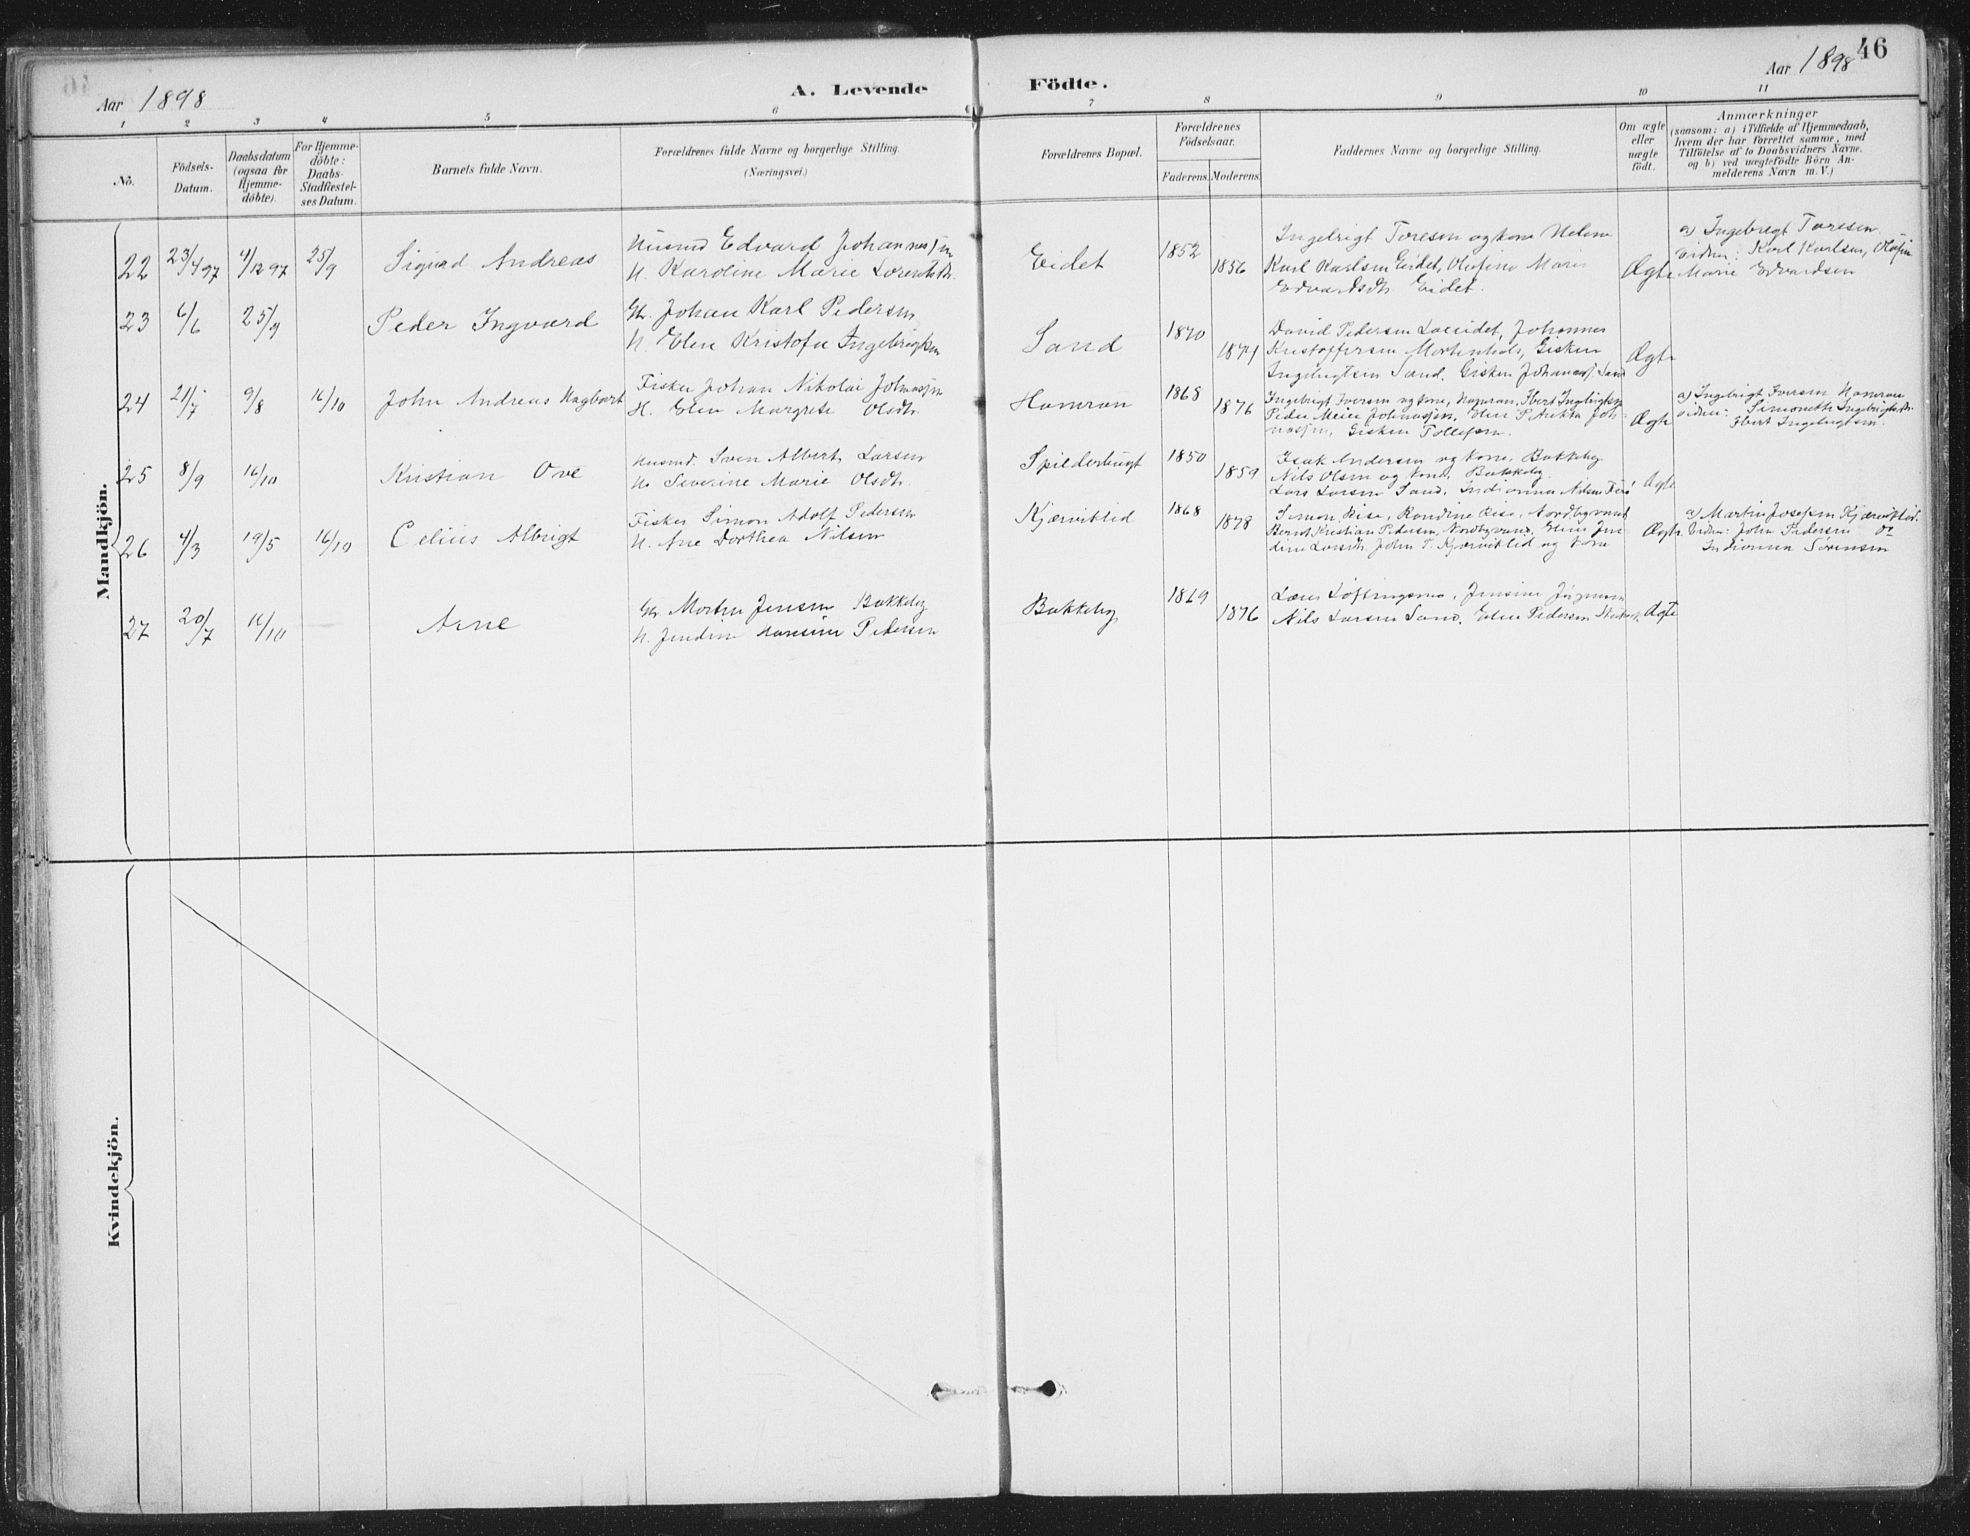 46
Aar 1898
A. Levende Födte.
Aar 1898
1 2 3 4 5 6 7 8 9 10 11
No.
Födsels-Datum.
Daabsdatum (ogsaa for Hjemme-döbte).
For Hjemme-döbte: Daabs-Stadfæstel-ses Datum.
Barnets fulde Navn.
Forældrenes fulde Navne og borgerlige Stilling.
(Næringsvei.)
Forældrenes Bopæl.
Forældrenes Födselsaar.
Faderens. Moderens.
Faddernes Navne og borgerlige Stilling.
Om ægte eller uægte födt.
Anmærkninger
(saasom: a) i Tilfælde af Hjemmedaab,
hvem der har forrettet samme, med
Tilföielse af to Daabsvidners Navne.
og b) ved uægtefödte Börn An-
melderens Navn m. V.)
Mandkjön.
22 23/4 97 4/12 97 25/9 Sigurd Andreas
Husmd Edvard Johannessen
H. Karoline Marie Lorentsdtr.
Eidet 1852 1856
Ingebrigt Toresen og kone Helene
Karl Karlsen Eidet, Olufine Marie
Edvardsdtr. Eidet.
Ægte
a) Ingebrigt Toresen
vidner: Karl Karlsen, Olufine
Marie Edvardsen
23 6/6 25/9 Peder Ingvard
Gbr. Johan Karl Pedersen
H. Elen Kristofa Ingebrigtsen
Sand 1870 1874
David Pedersen Laxeidet, Johannes
Kristoffersen Mortenhals, Gisken
Ingebrigtsen Sand. Gisken Johannes. Sand
Ægte
24 21/7 9/8 16/10 John Andreas Hagbart
Fisker Johan Nikolai Johnassen
H. Elen Margrete Olsdtr.
Hamran 1868 1876
Ingebrigt Iversen og kone, Hamran, Ebert Ingebrigtsen
Peder Meier Johnassen, Elen P. Joh-
nassen, Gisken Tollefsen.
Ægte
a) Ingebrigt Iversen Hamran
vidner: Simoneth Ingebrigtsdtr.
Ebert Ingebrigtsen.
25 8/9 16/10 Kristian Ove
Husmd. Sven Albert Larsen
H. Severine Marie Olsdtr.
Spilderbugt 1850 1859
Isak Andersen og kone, Bakkeby
Nils Olsen og kone Bakkeby
Lars Larsen Sand. Indianna Nilsen
Ægte
26 4/3 19/5 16/10 Celius Albrigt
Fisker Simon Adolf Pedersen
H. Ane Dorthea Nilsen
Kjærviklid 1868 1878
Simon Rise, Randine Rise, Nordbyvand
Bernt Kristian Pedersen, Nordbyvand, Elen Jen-
dine Larsdtr. John P. Kjærviklid og kone
Ægte
a) Martin Josefsen Kjærviklid.
Vidner: John Pedersen og
Indianna Sørensen
27 20/7 16/10 Arne
Gbr. Morten Jensen Bakkeby
H. Jendine Hansine Pedersen
Bakkeby 1869 1876
Jensine Jörgensen
Nils Larsen Sand. Elen Pedersen
Ægte
Kvindekjön.